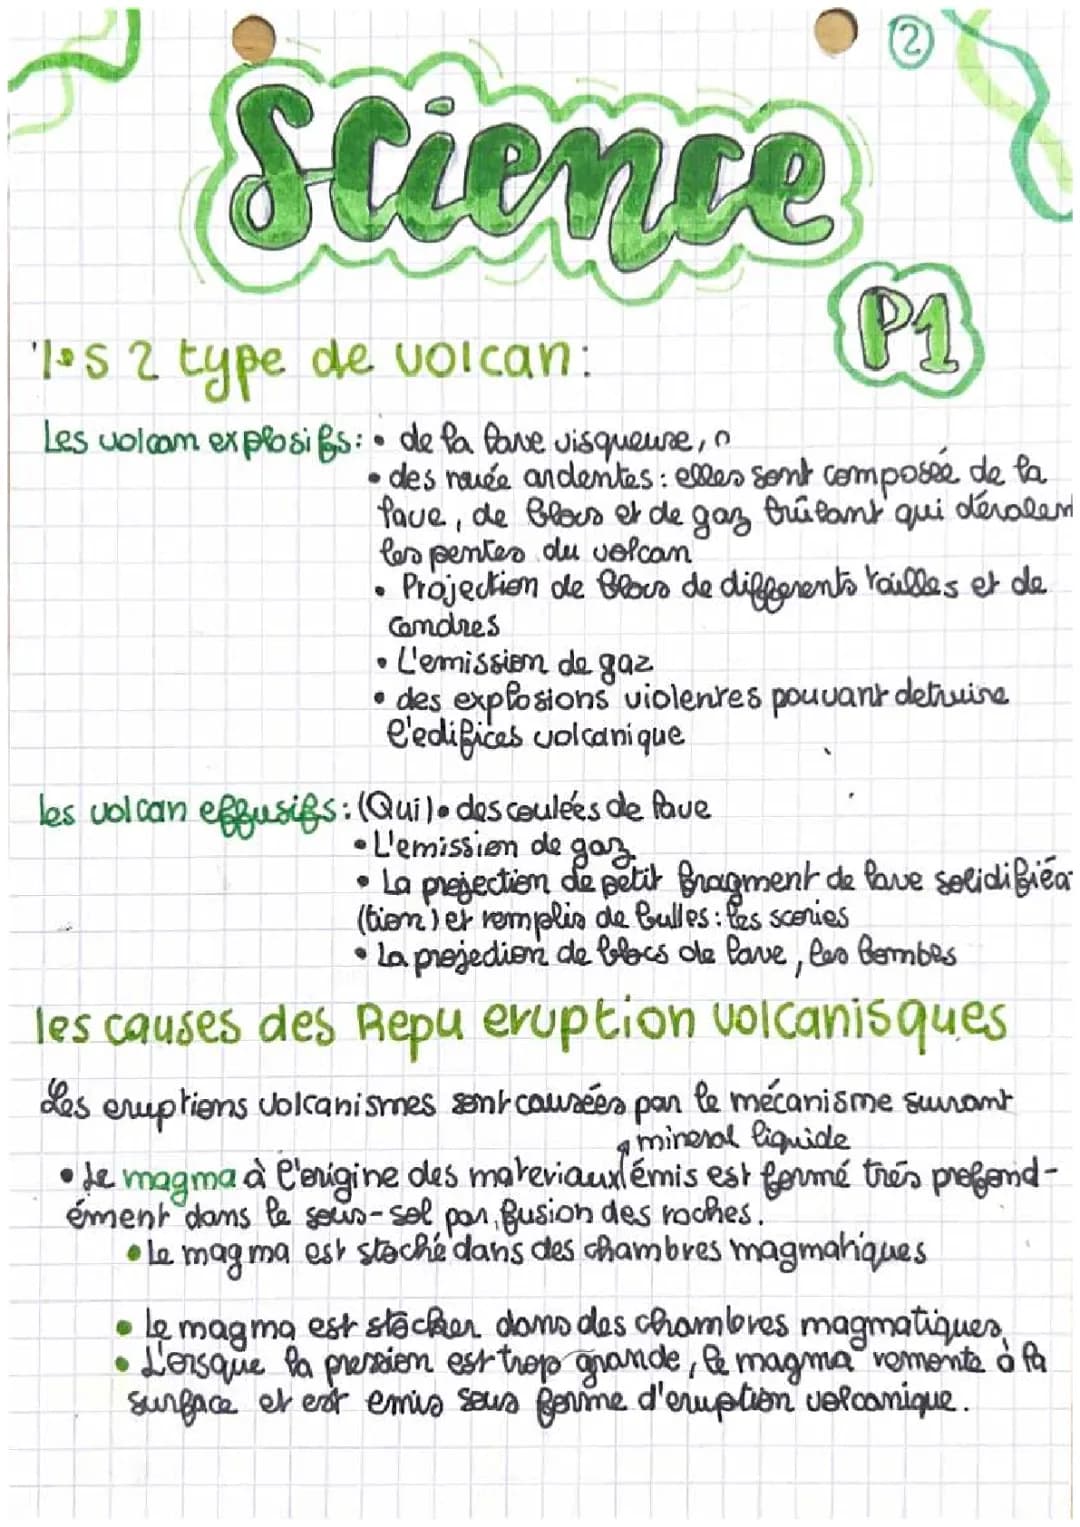 2
Science
P1
les 2 type de volcan:
Les volcan explosifs: • de la lave visqueuse,
• des nuée ardentes: elles sont composée de la
lave, de blocs et de gaz brûlant qui dévalent
les pentes du volcan
• Projection de blocs de differents tailles et de
Cendres
• L'emission de gaz
• des explosions violentes pouvant detruire
l'edifices volcanique
les volcan effusifs: (Qui) • des coulées de lave
• L'emission de gaz
• La projection de petit fragment de lave solidifiéa
(tion) et remplis de bulles: les scories
• La projection de blocs de lave, les bombes
les causes des Repu eruption volcanisques
Les eruptions volcanismes sont causées par le mécanisme suivant
mineral liquide
• Le magma à l'origine des materiaux émis est formé trés profond-
ément dans le sous-sol par fusion des roches.
• Le magma est stoché dans des chambres magmatiques
• Le magma est stocker dans des chambres magmatiques,
• L'orsque la pression est trop grande, le magma remonte à la
surface et est emis sous forme d'eruption volcanique.